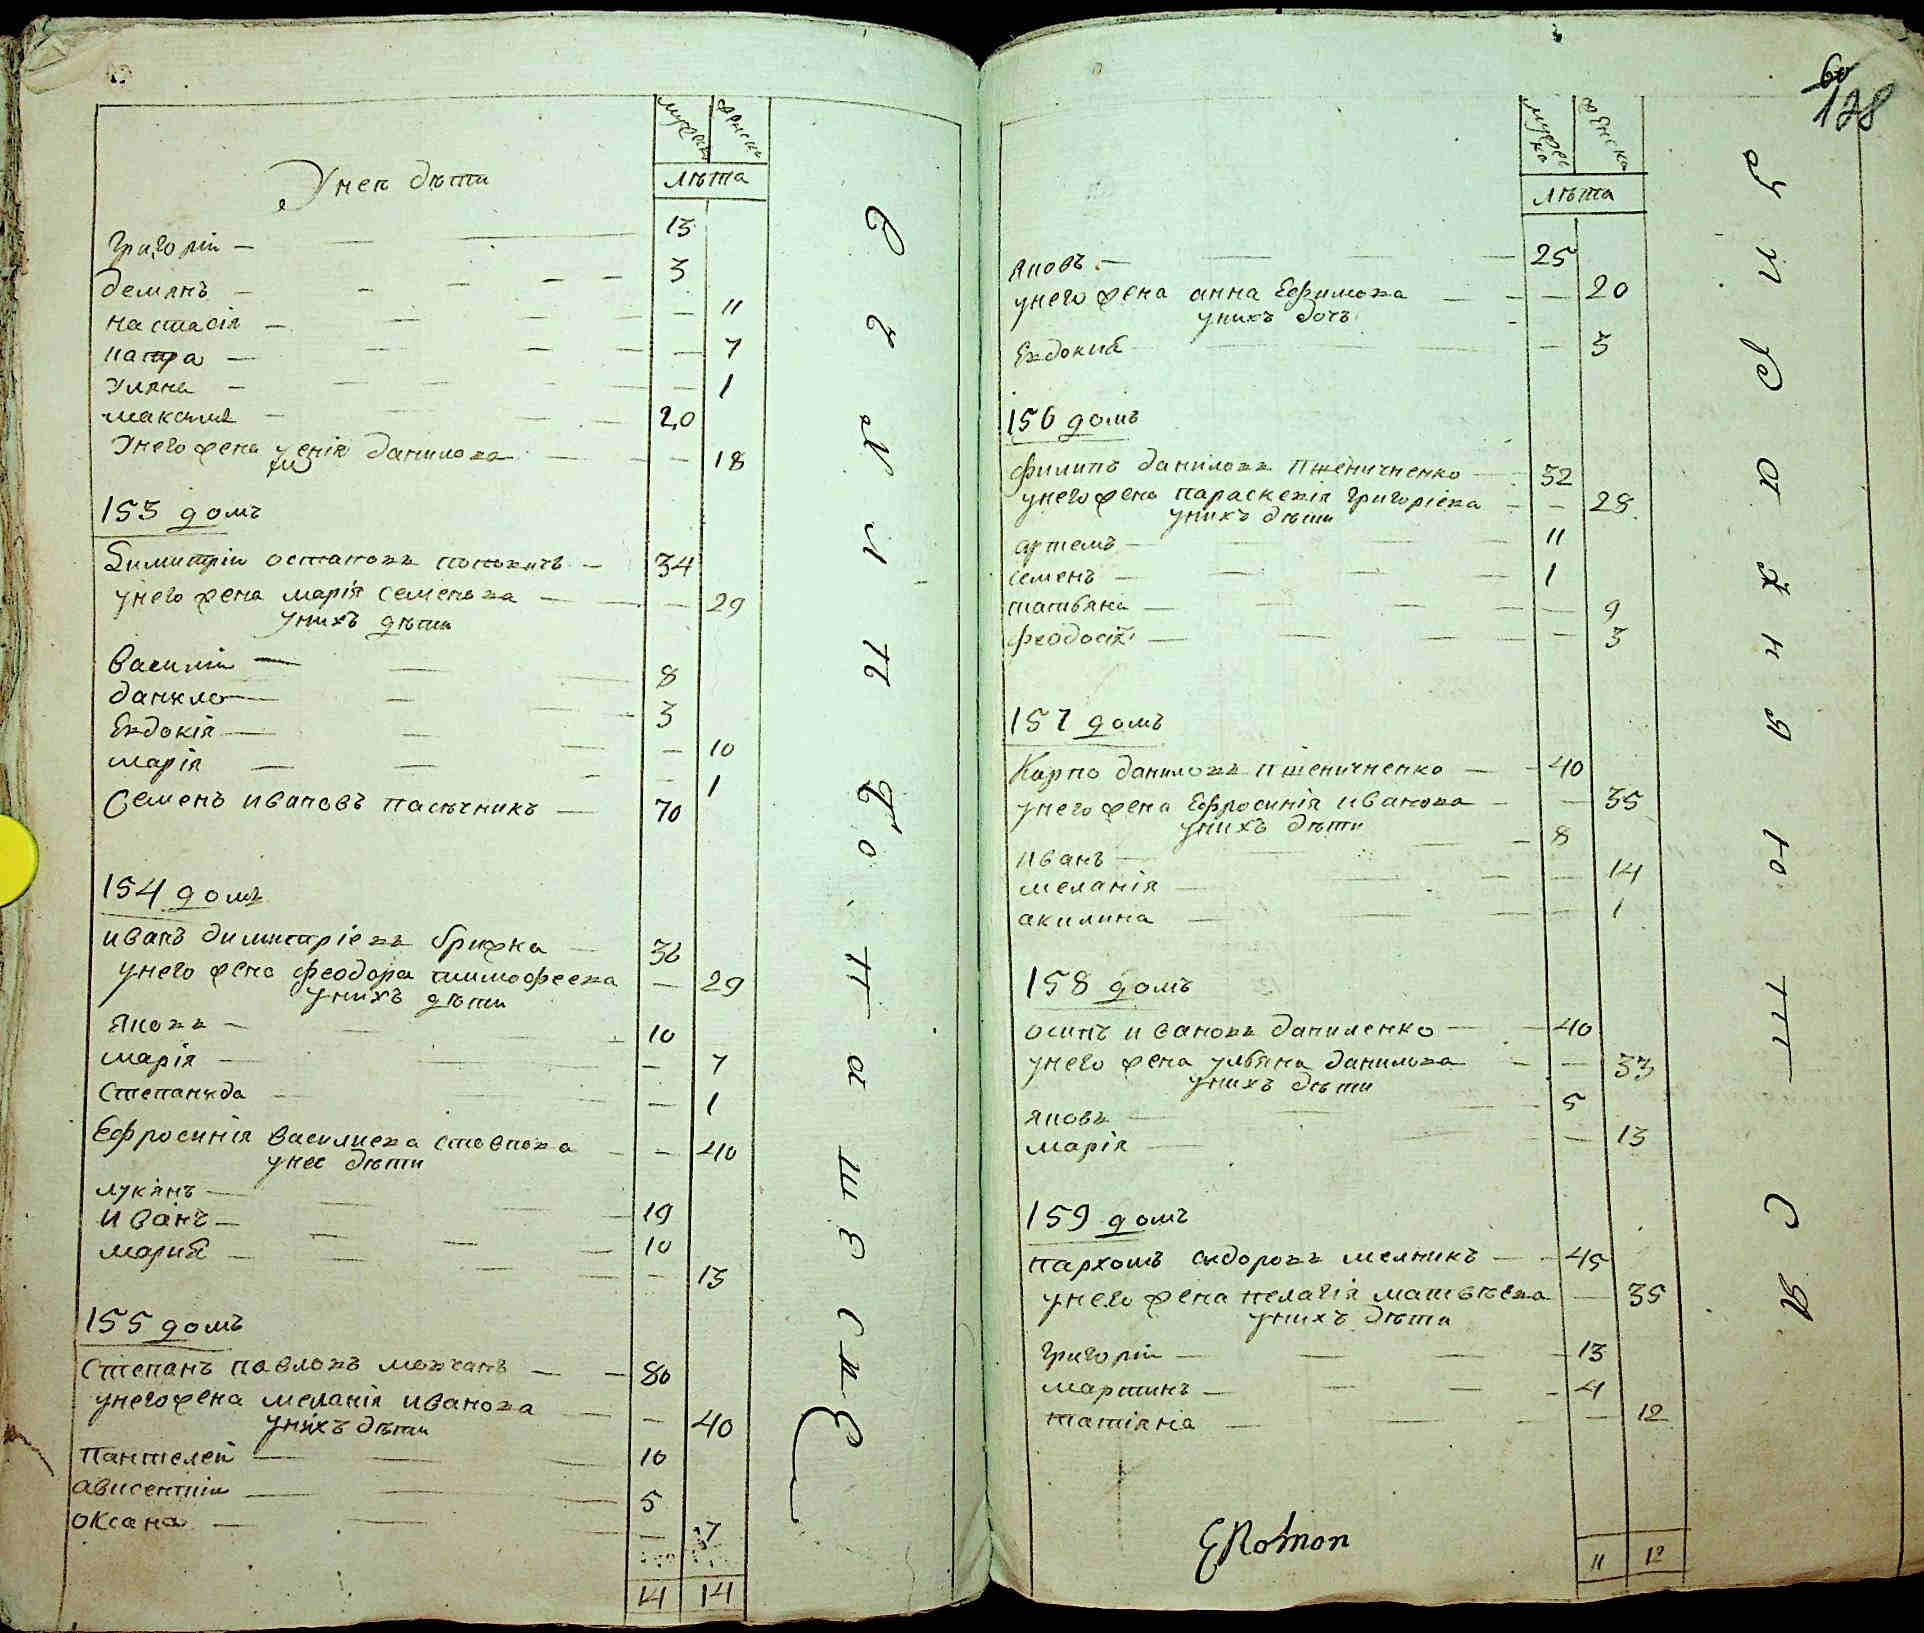 мужеска женска
лѣта
Унеѣ дѣти
Григорій — 13
демянъ — 3
настасія — 11
натра — 7
Уляна — 1
максимъ — 20
Унего жена данилова — 18
153 домъ
Димитрій остаповъ поповичъ — 34
унего жена марія семенова — 29
унихъ дѣти
василій — 8
данило — 3
Евдокія — 10
марія — 1
Семенъ ивановъ пасѣчникъ — 70
154 домъ
иванъ димитріевъ брижка — 36
унего жена феодора тимофеева — 29
унихъ дѣти
яковъ — 10
марія — 7
Степанида — 1
Ефросинія василиева — 40
унее дѣти
лукянъ — 19
иванъ — 10
марія — 13
155 домъ
Степанъ павловъ мовчанъ — 80
унего жена меланія иванова — 40
унихъ дѣти
Пантелей — 10
ависентій — 5
оксана — 7
14 14
60
128
мужеска женска
лѣта
яковъ — 25
унего жена анна Ефимова — 20
унихъ дочь
Евдокия — 3
156 домъ
филипъ даниловъ пшеничненко — 32
унего жена параскевія григоріева — 28
унихъ дѣти
артемъ — 11
семенъ — 1
татьяна — 9
феодосія — 3
157 домъ
Карпо даниловъ пшеничненко — 40
унего жена Ефросинія иванова — 35
унихъ дѣти
иванъ — 8
меланія — 14
акилина — 1
158 домъ
осипъ ивановъ даниленко — 40
унего жена ульяна данилова — 33
унихъ дѣти
яковъ — 5
марія — 13
159 домъ
пархомъ сидоровъ мелникъ — 45
унего жена пелагія матвѣева — 35
унихъ дѣти
григорій — 13
мартинъ — 4
татіяна — 12
11 12